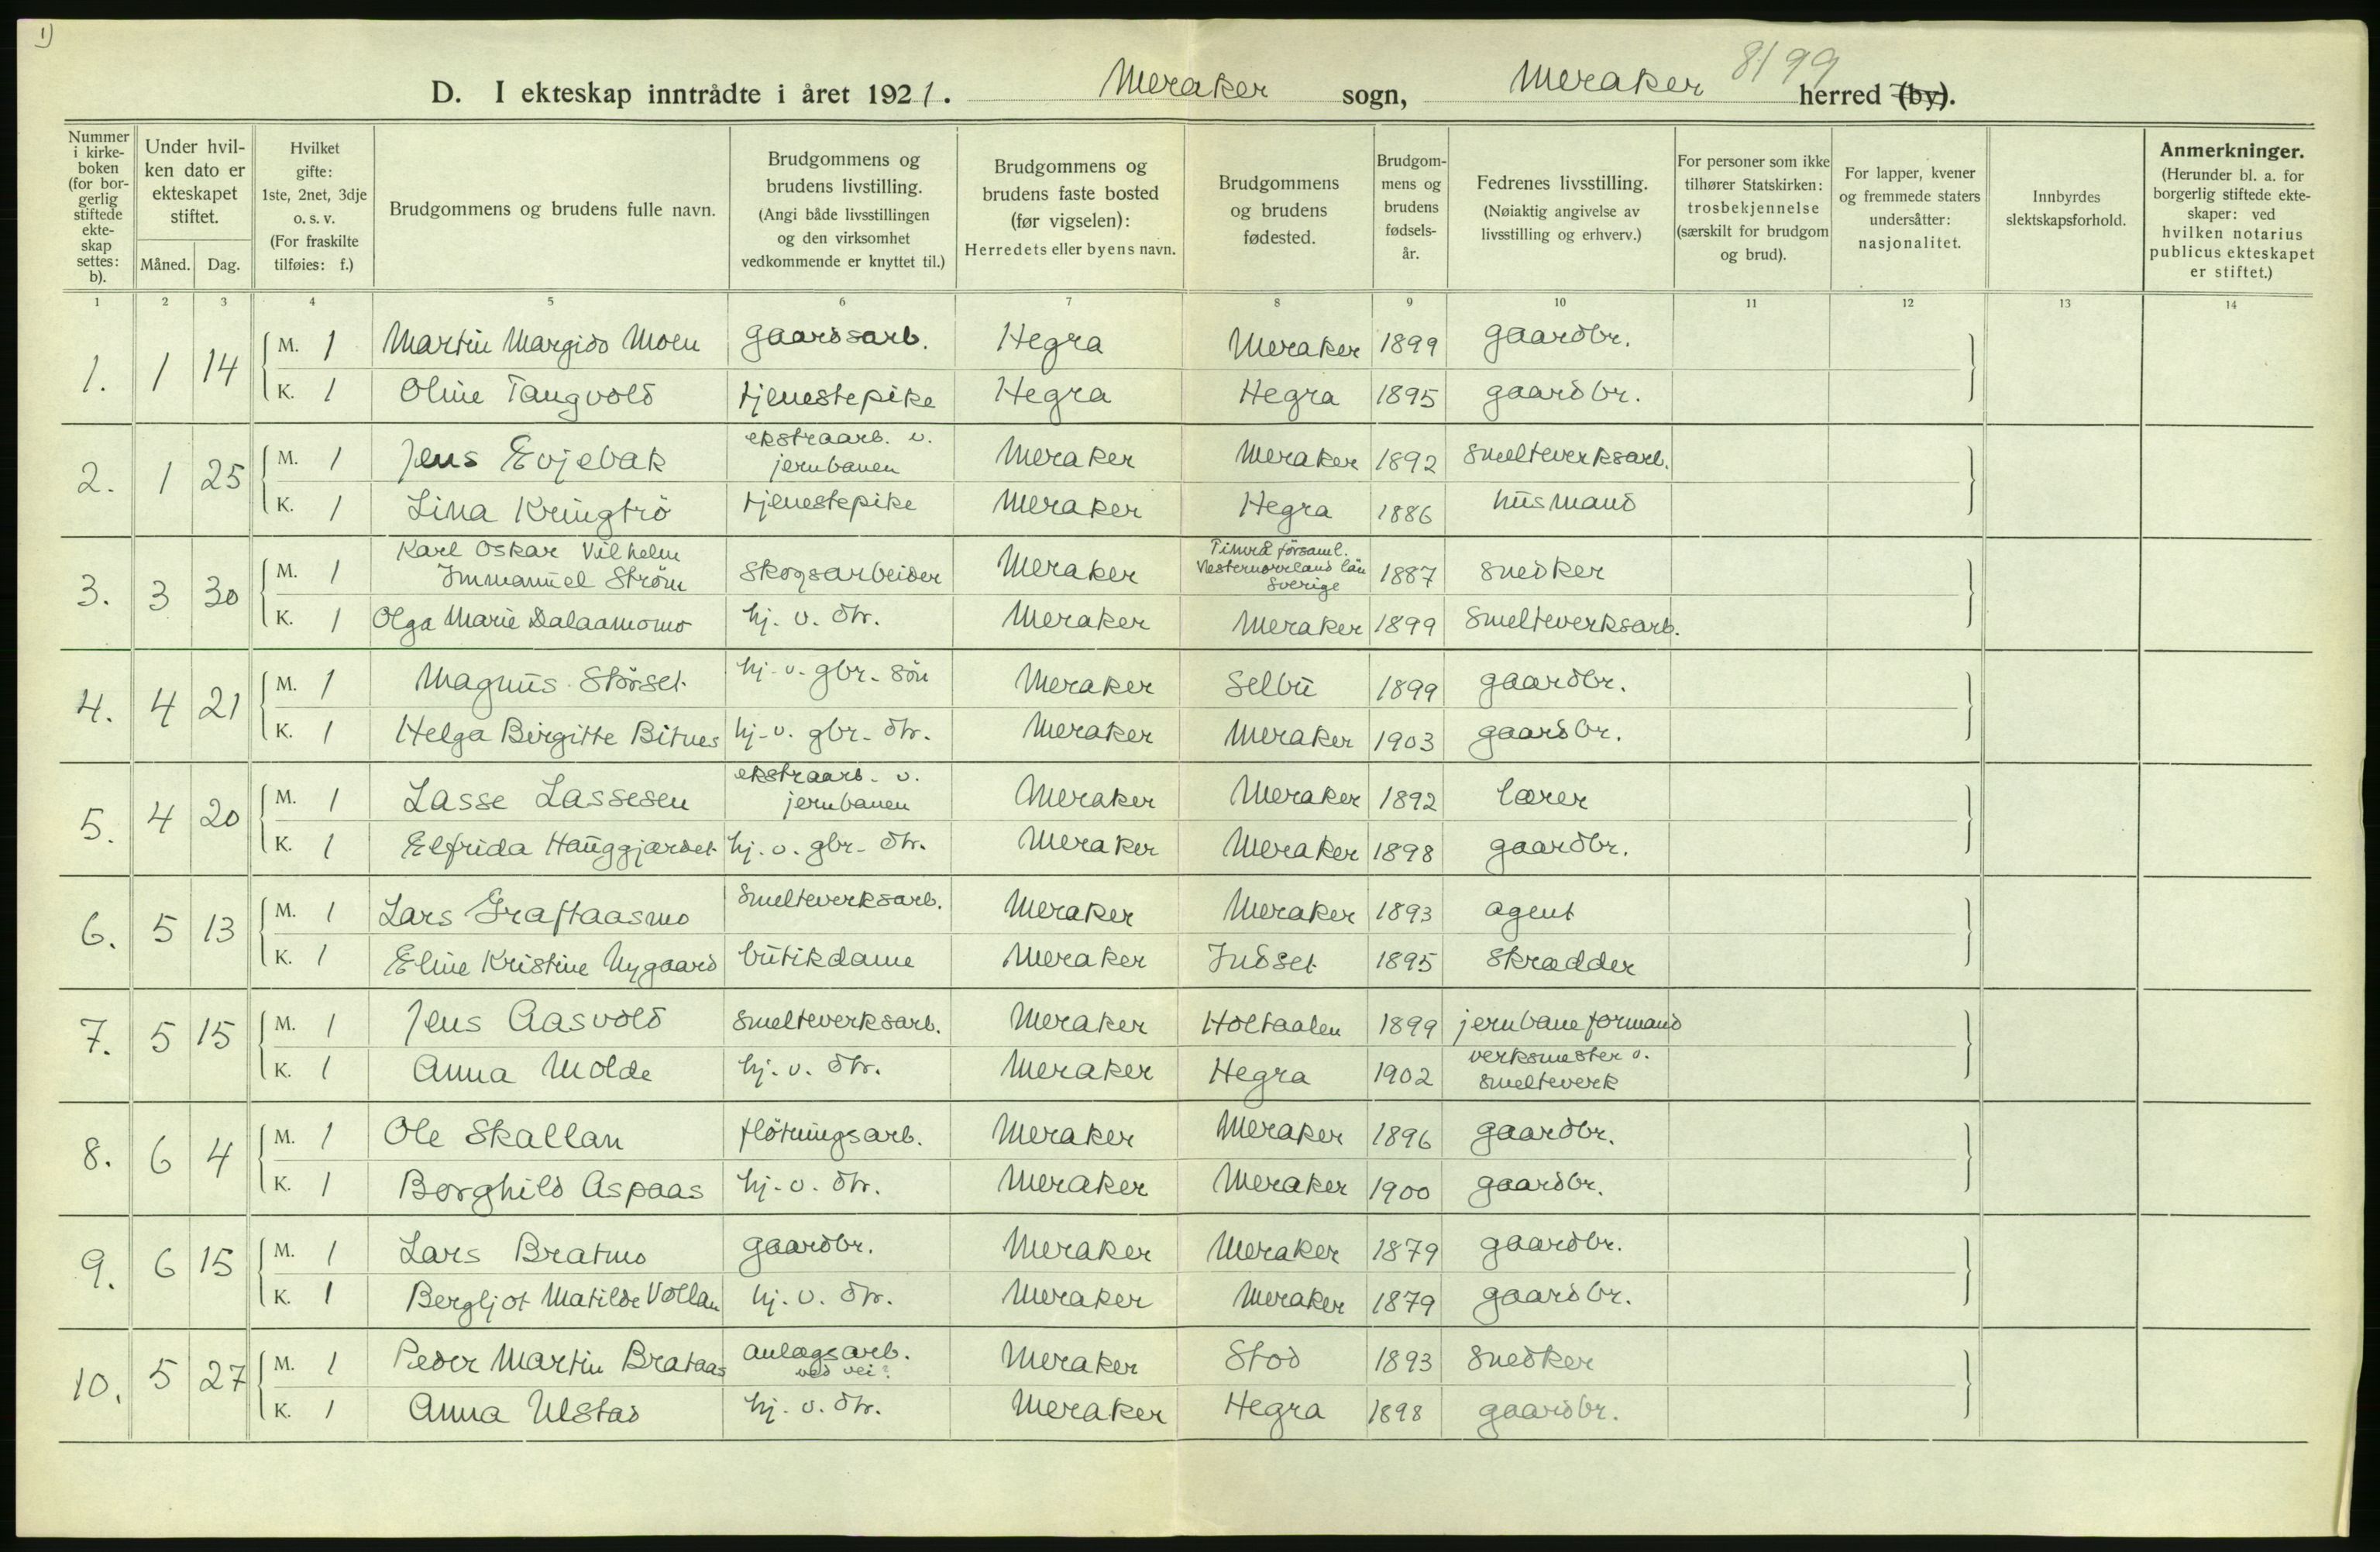 1)
8/99
D. I ekteskap inntrådte i året 1921. Meraker sogn, Meraker herred (by).
Nummer i kirkeboken (for borgerlig stiftede ekteskap settes: b).
Under hvilken dato er ekteskapet stiftet.
Måned. Dag.
Hvilket gifte: 1ste, 2net, 3dje o. s. v. (For fraskilte tilføies: f.)
Brudgommens og brudens fulle navn.
Brudgommens og brudens livstilling. (Angi både livsstillingen og den virksomhet vedkommende er knyttet til.)
Brudgommens og brudens faste bosted (før vigselen): Herredets eller byens navn.
Brudgommens og brudens fødested.
Brudgommens og brudens fødselsår.
Fedrenes livsstilling. (Nøiaktig angivelse av livsstilling og erhverv.)
For personer som ikke tilhører Statskirken: trosbekjennelse (særskilt for brudgom og brud).
For lapper, kvener og fremmede staters undersåtter: nasjonalitet.
Innbyrdes slektskapsforhold.
Anmerkninger. (Herunder bl. a. for borgerlig stiftede ekteskaper: ved hvilken notarius publicus ekteskapet er stiftet.)
1 2 3 4 5 6 7 8 9 10 11 12 13 14
1. 1 14 M. 1 Martin Margido Moen gaardsarb. Hegra Meraker 1899 gaardbr.
K. 1 Oline Tangvold tjenestepike Hegra Hegra 1895 gaardbr.
2. 1 25 M. 1 Jens Evjebak ekstraarb. v. jernbanen Meraker Meraker 1892 smelteverksarb.
K. 1 Lina Kringtrö tjenestepike Meraker Hegra 1886 husmand
3. 3 30 M. 1 Karl Oskar Vilhelm Immanuel Ström skogsarbeider Meraker Timrå församl. Vesternorrland län Sverige 1887 snedker
K. 1 Olga Marie Dalaamomo hj. v. dtr. Meraker Meraker 1899 smelteverksarb.
4. 4 21 M. 1 Magnus Störset hj. v. gbr. sön Meraker Selbu 1899 gaardbr.
K. 1 Helga Birgitte Bitnes hj. v. gbr. dtr. Meraker Meraker 1903 gaardbr.
5. 4 20 M. 1 Lasse Lassesen ekstraarb. v. jernbanen Meraker Meraker 1892 lærer
K. 1 Elfrida Hauggjærdet hj. v. gbr. dtr. Meraker Meraker 1898 gaardbr.
6. 5 13 M. 1 Lars Graftaasmo smelteverksarb. Meraker Meraker 1893 agent
K. 1 Eline Kristine Nygaard butikdame Meraker Indset 1895 skrædder
7. 5 15 M. 1 Jens Aasvold smelteverksarb. Meraker Holtaalen 1899 jernbaneformand
K. 1 Anna Molde hj. v. dtr. Meraker Hegra 1902 verksmester v. smelteverk
8. 6 4 M. 1 Ole Skallan flötningsarb. Meraker Meraker 1896 gaardbr.
K. 1 Borghild Aspaas hj. v. dtr. Meraker Meraker 1900 gaardbr.
9. 6 15 M. 1 Lars Bratmo gaardbr. Meraker Meraker 1879 gaardbr.
K. 1 Bergljot Matilde Vollan hj. v. dtr. Meraker Meraker 1879 gaardbr.
10. 5 27 M. 1 Peder Martin Brataas anlægsarb. ved vei? Meraker Stod 1893 snedker
K. 1 Anna Ulstad hj. v. dtr. Meraker Hegra 1898 gaardbr.